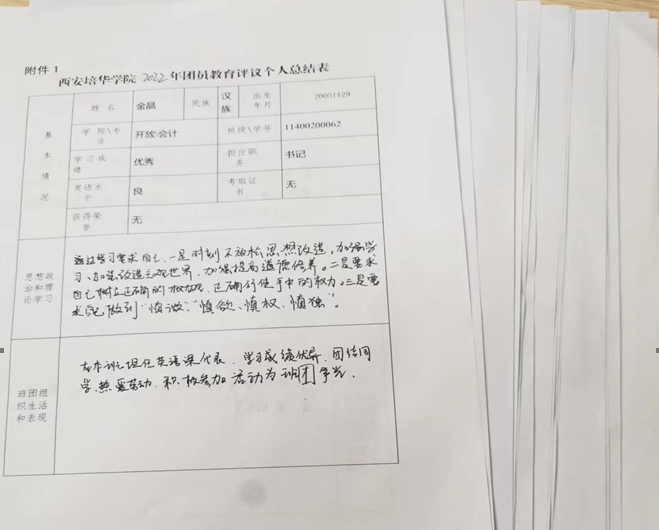 附件 1
西安培华学院 2022 年团员教育评议个人总结表
基本情况
姓 名 金晶 民族 汉族 出生年月 20051129
学 院\专业 开放\会计 班级\学号 11400200062
学习成绩 优秀 担任职务 书记
英语水平 良 考取证书 无
获得荣誉 无
思想政治和理论学习
通过学习要求自己,一是时刻不放松思想改造,加强学
习、加强改造主观世界,加强提高道德修养。二是要求
自己树立正确的权力观,正确行使手中的权力。三是要
求自己做到“慎微”、“慎欲、慎权、慎独”。
班团组织生活和表现
在本班担任英语课代表,学习成绩优异,团结同
学,热爱劳动,积极参加活动为班团争光.